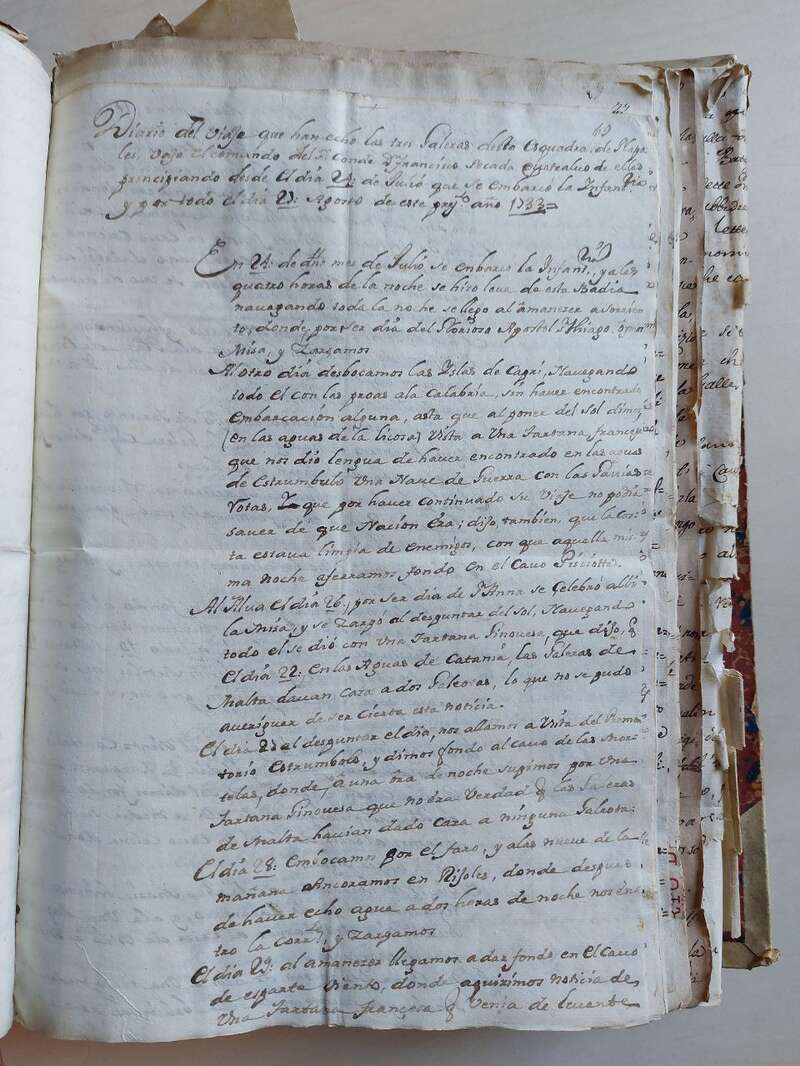 29
69
Diario del Viaje que han echo las tres Galeras desta Esquadra, de Napo
les, vajo el comando del Sr. Conde Dn Francisco Secada quatralvo de ellas
principiando desde el día 24: de Julio que se embarco la Infantria
y por todo el día 23: Agosto de este preste año 1733=
En 24: de dho mes de Julio, se enbarco la Infantria, y alas
quatro horas de la noche se hizo leva de esta Badia
navegando toda la noche se llego al amanezer a Sorrien
to, donde, por ser dia del Glorioso Apostol S. Thiago,
Misa, y Zarpamos
Al otro día desbocamos las Yslas de Capri, Navegando
todo el con las proas ala Calabria, sin haver encontrado
embarcacion alguna, asta que al poner del sol dimos
(en las aguas de la licosa) vista a Una Tartana, francesa
que nos dio lengua de haver encontrado en las aguas
de Estrumbulo Una Nave de Guerra con las
Votas, que por haver continuado su Viaje no podia
saver de que Nacion Era; dijo, tambien, que la Cos
ta estava limpia de enemigos, con que aquella mis
ma noche aferramos fondo en el Cavo Pisciotta.
Al Alva el día 26:, por ser dia de Sta Anna se Celebró alli
la Misa, y se Zarpó al despuntar del sol, Navegando
todo el se dió con Una Tartana Ginovesa, que dijo, q
El día 22: en las Aguas de Catania, las Galeras de
Malta davan, Caza a dos Galeotas, lo que no se pudo
averiguar de ser Cierta esta noticia.
El día 27 al despuntar el día, nos allamos a Vista del Promon
torio Estrumbolo, y dimos fondo al Cavo de las Mor
telas, donde, a una ora de noche supimos por Una
Tartana Ginovesa que no era Verdad q las Galeras
de Malta havian dado Caza a ninguna Galeota:
El día 28: Embocamos por el faro, y alas nueve de la
mañana Ancoramos en Rijoles, donde despues
de haver echo agua a dos horas de noche nos en
tro la Corrte, y Zarpamos
El día 29: al amanezer llegamos a dar fondo en el Cavo
de esparte Viento, donde aquirimos noticia de
Una Tartana francesa q Venia de levante